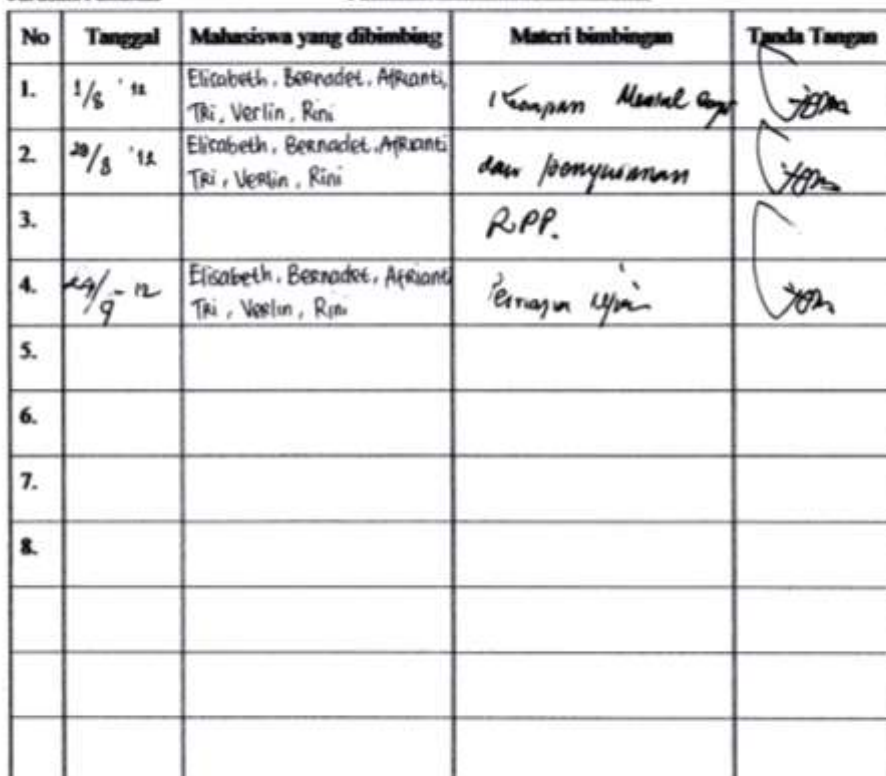 No Tanggal Mahasiswa yang dibimbing Materi bimbingan Tanda Tangan
1. 1/8 '12 Elisabeth, Bernadet, Afrianti,
Tri, Verlin, Rini
2. 20/8 '12 Elisabeth, Bernadet, Afrianti
Tri, Verlin, Rini
dan penyusunan
3. RPP.
4. 24/9-12 Elisabeth, Bernadet, Afrianti
Tri, Verlin, Rini
5.
6.
7.
8.